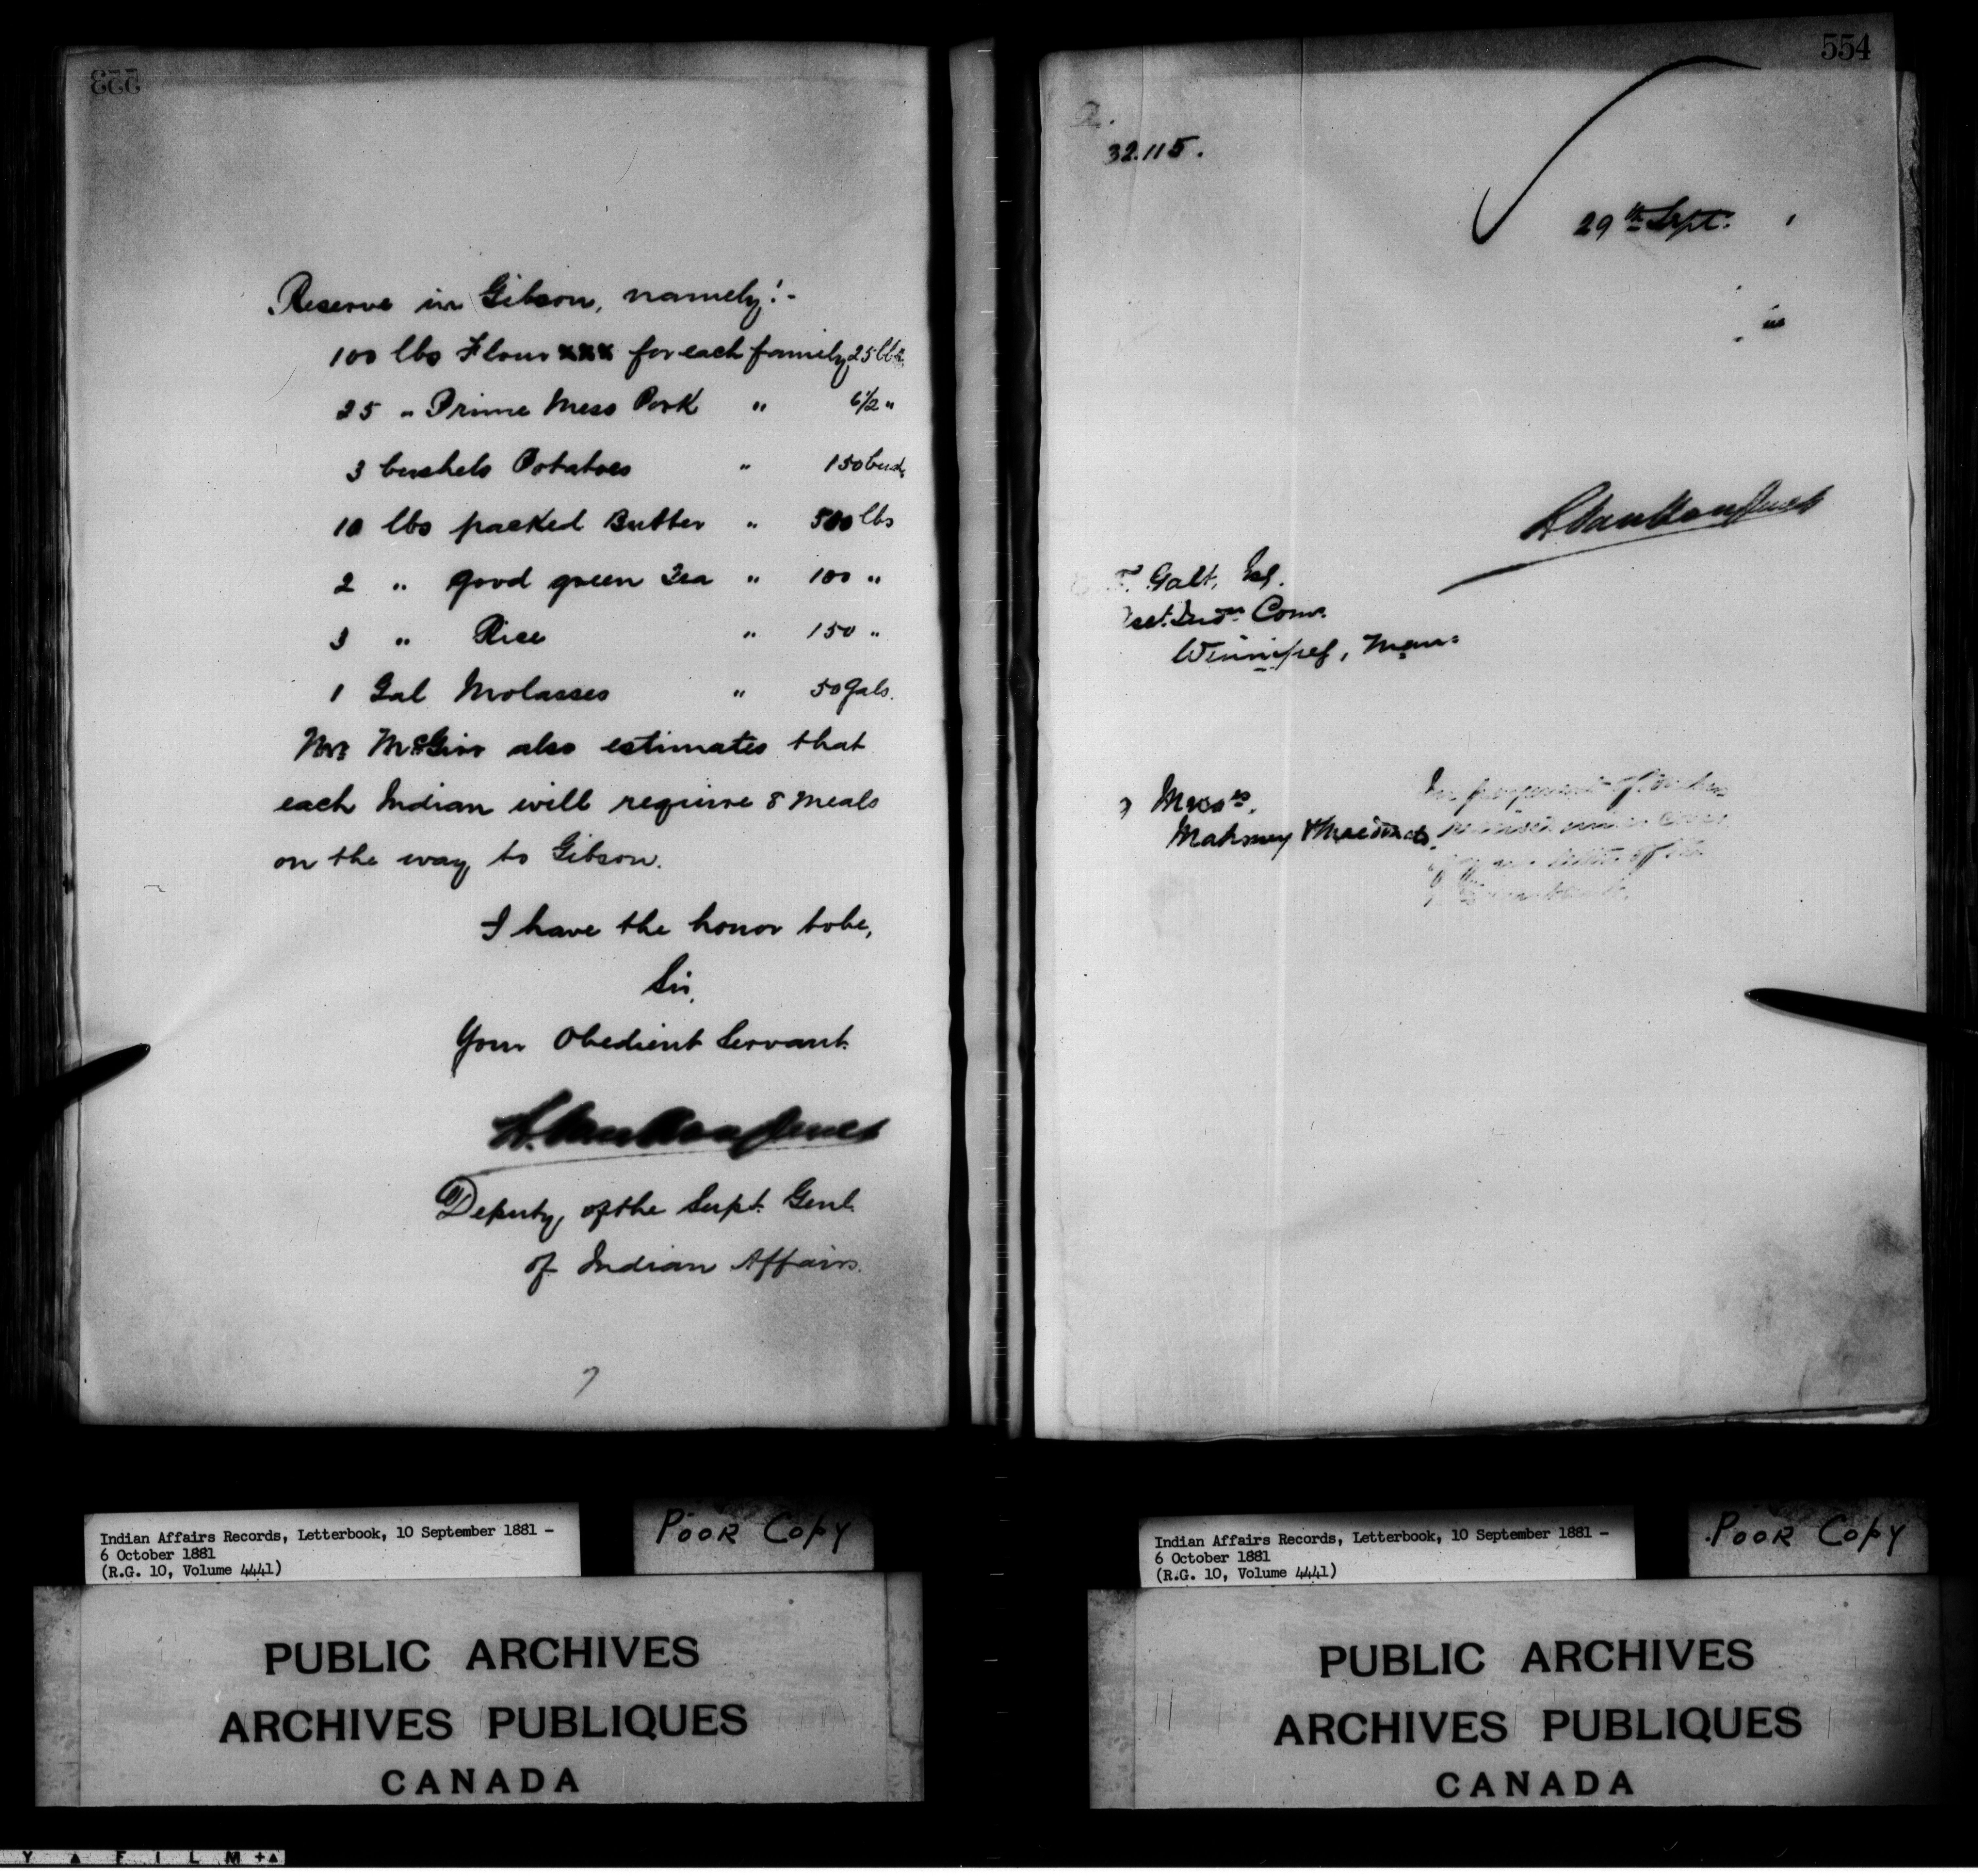 553
Reserve in Gibson, namely:-
100 lbs Flour xxx for each family 25 lbs
25 " Prime Mess Pork " 6 1/2 "
3 bushels Potatoes " 150 bush.
10 lbs packed Butter " 500 lbs
2 " good green Tea " 100 "
3 " Rice " 150 "
1 Gal Molasses " 50 gals.
Mr. McGirr also estimates that
each Indian will require 8 meals
on the way to Gibson.
I have the honor to be,
Sir,
Your Obedient Servant.
L. Vankoughnet
Deputy of the Supt. Genl.
of Indian Affairs.
Indian Affairs Records, Letterbook, 10 September 1881 -
6 October 1881
(R.G. 10, Volume 4441)
Poor Copy
PUBLIC ARCHIVES
ARCHIVES PUBLIQUES
CANADA
554
32.115.
29th Sept.
L. Vankoughnet
T. Galt, Esq.
Indn. Com.
Winnipeg, Man:
Messrs.
Mahoney
In payment of
received under cover
of your letter of the
Indian Affairs Records, Letterbook, 10 September 1881 -
6 October 1881
(R.G. 10, Volume 4441)
Poor Copy
PUBLIC ARCHIVES
ARCHIVES PUBLIQUES
CANADA